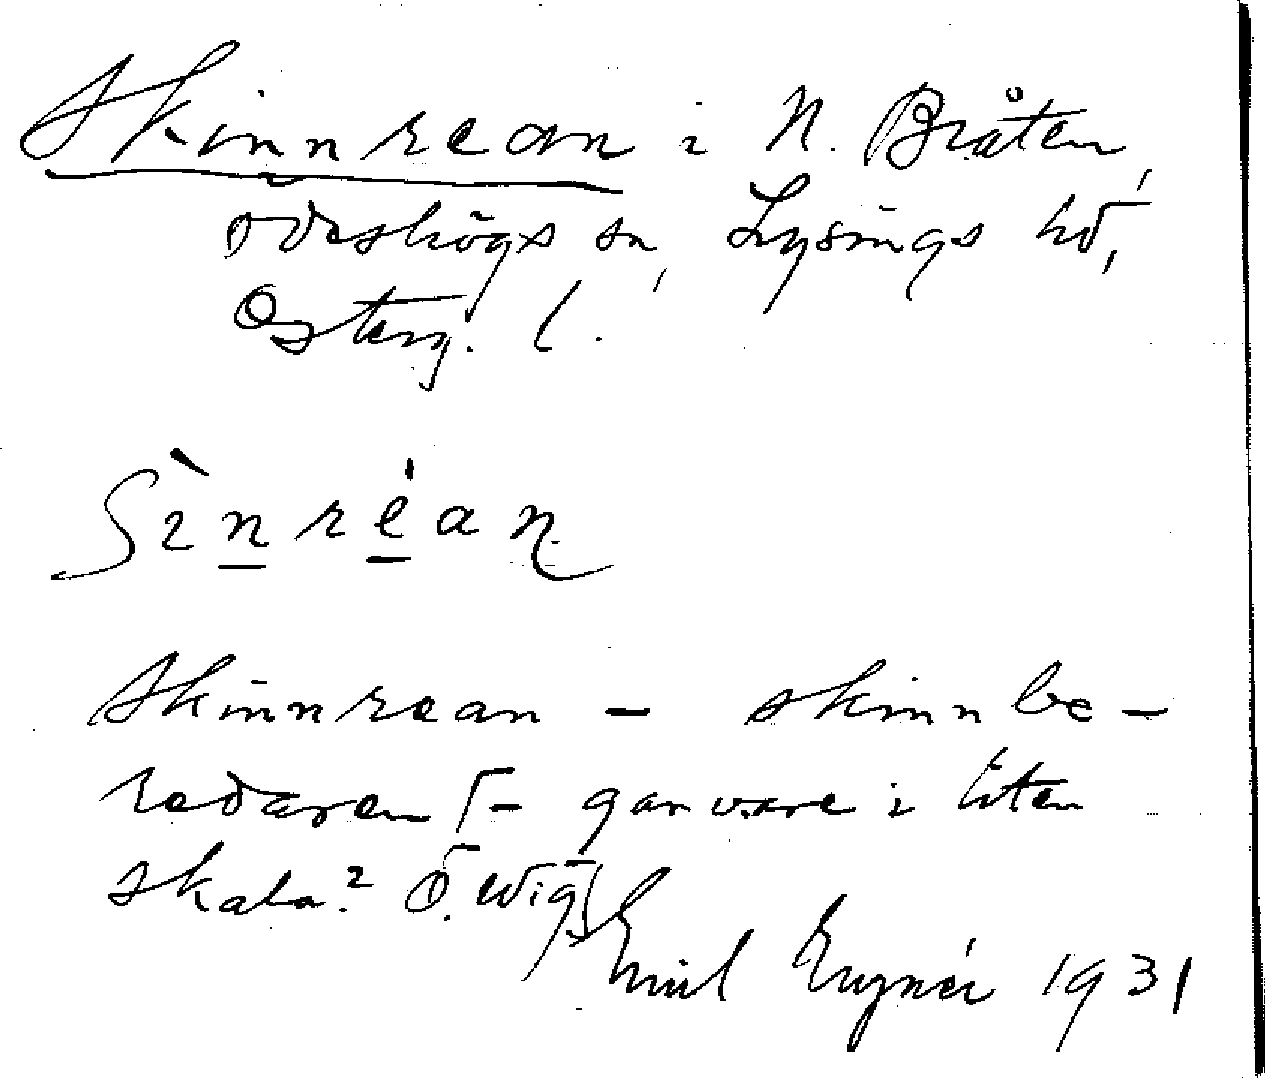 Skinnrean i N. Bråten,
Ödeshögs sn, Lysings hd,
Österg. l.
Sìnréan
Skinnrean - skinnbe-
redaren [- garvare i liten
skala? Ö. Wig]
Emil 1931